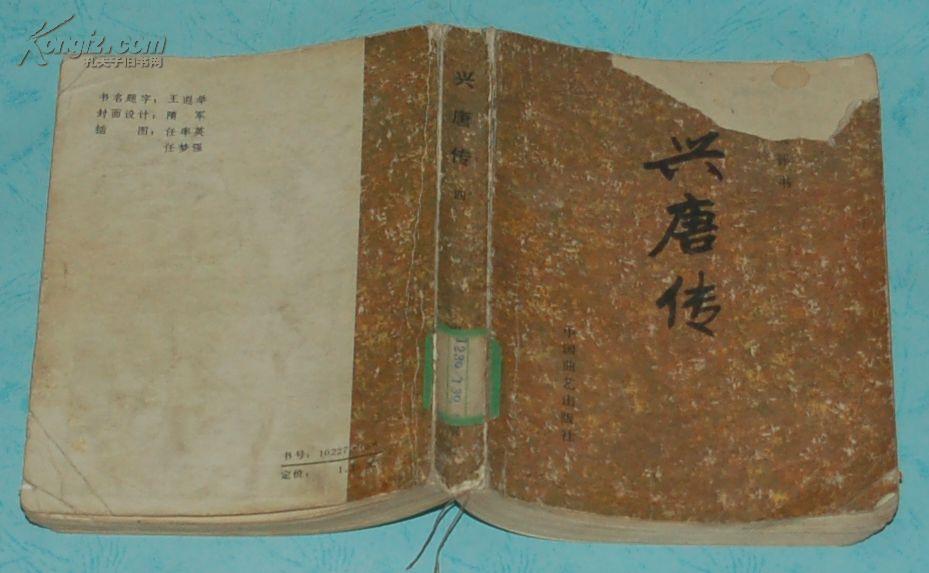 Kongfz.com
孔夫子旧书网
书名题字：王遐举
封面设计：隋军
插图：任率英
任梦强
书号：10227
定价：1.
兴唐传
四
评书
兴唐传
中国曲艺出版社